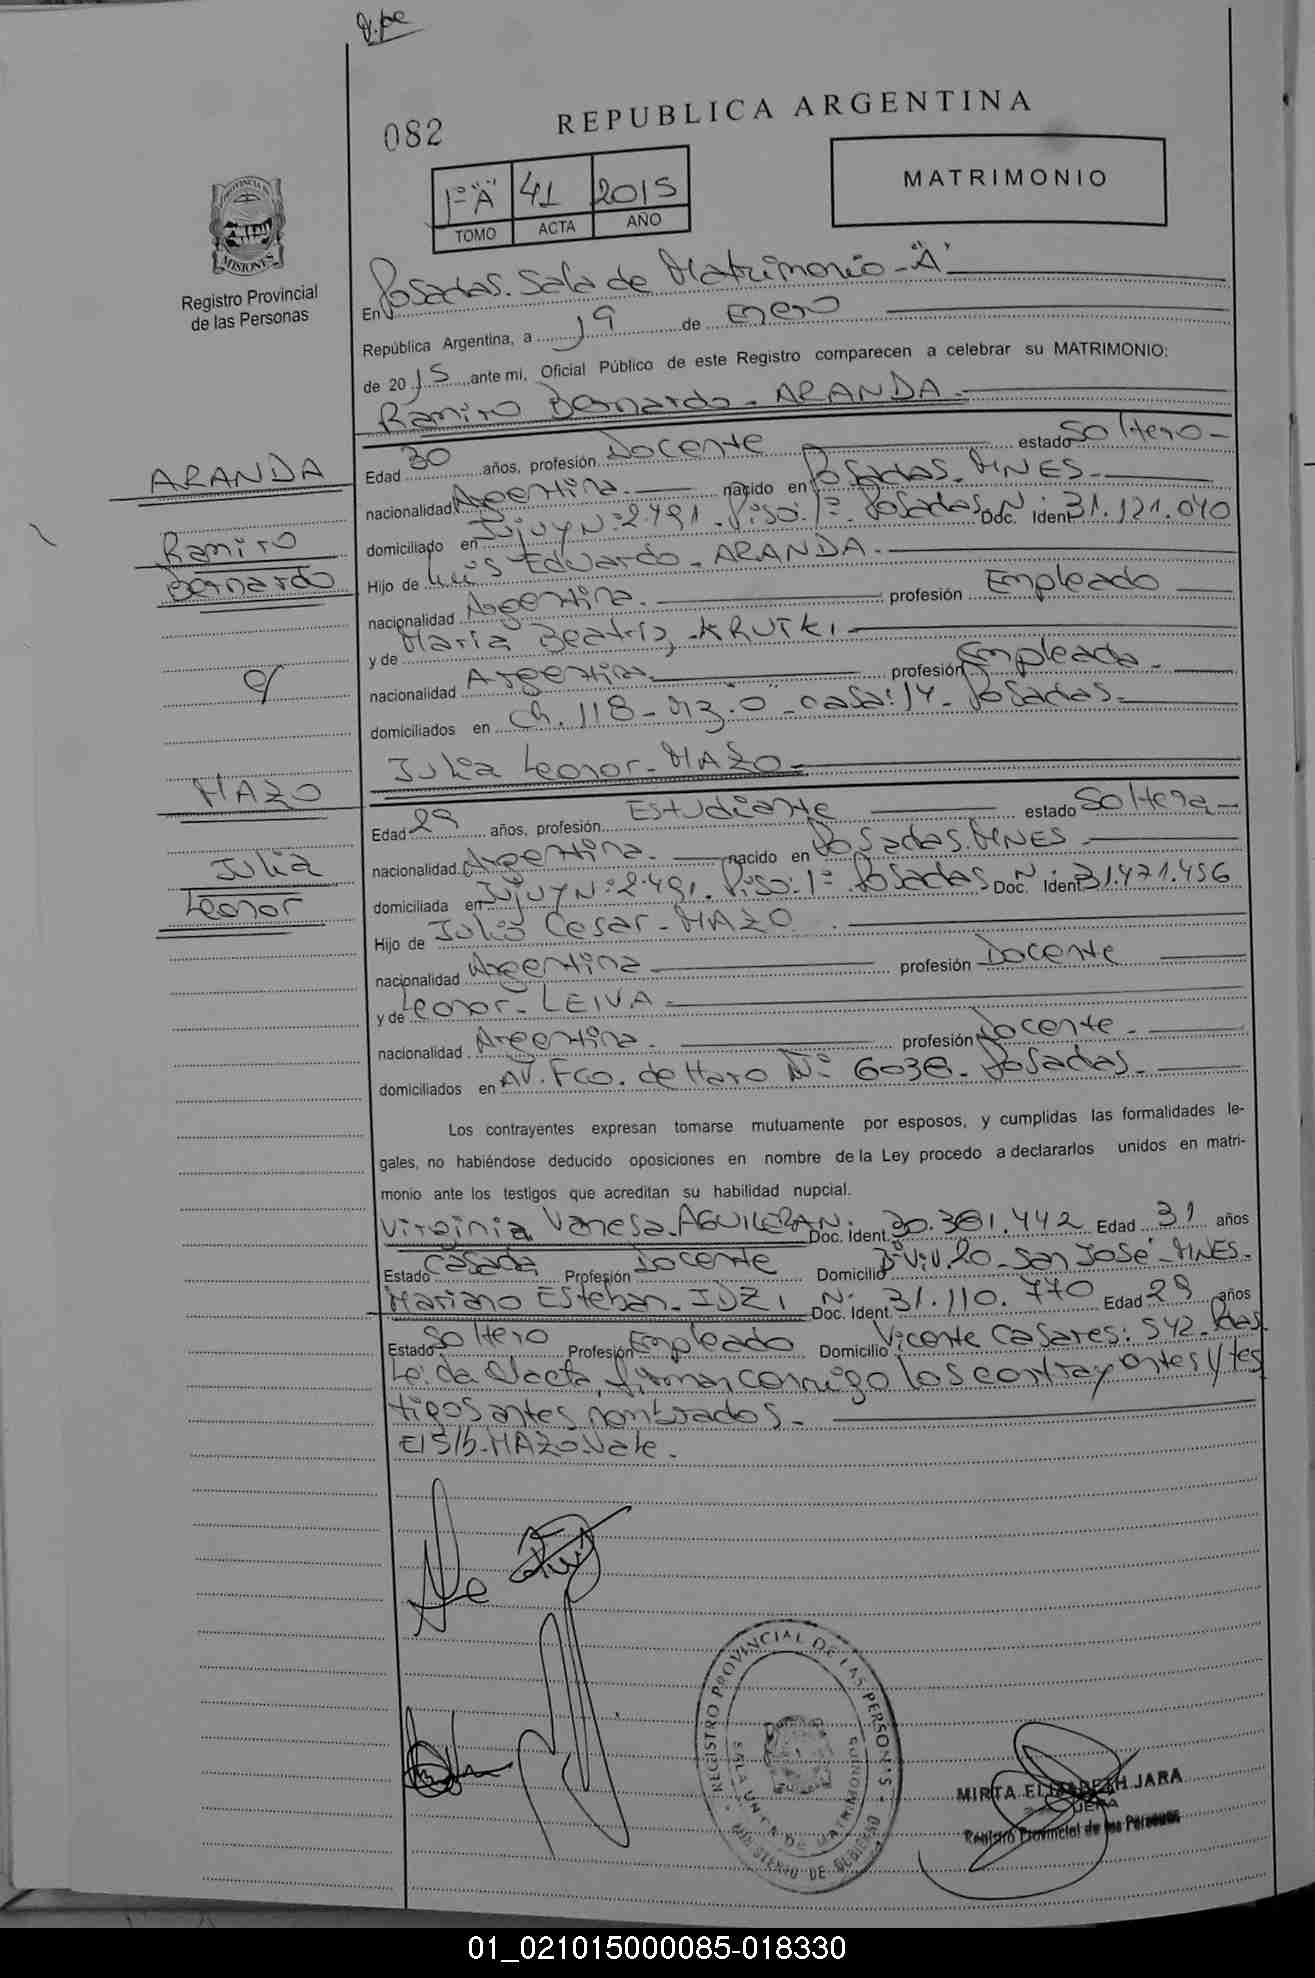 082
REPUBLICA ARGENTINA
1º "A" 41 2015
TOMO ACTA AÑO
MATRIMONIO
PROVINCIA DE MISIONES
Registro Provincial
de las Personas
En Posadas. Sala de Matrimonio - "A"
República Argentina, a 19 de Enero
de 2015 ante mi, Oficial Público de este Registro comparecen a celebrar su MATRIMONIO:
Ramiro Bernardo - ARANDA -
ARANDA
Ramiro
Bernardo
Edad 30 años, profesión Docente estado Soltero -
nacionalidad Argentina. nacido en Posadas. MNES -
domiciliado en Jujuy Nº: 2491. Piso: 1º. Posadas Doc. Ident. Nº: 31.121.040
Hijo de Luis Eduardo - ARANDA -
nacionalidad Argentina. profesión Empleado
y de Maria Beatriz - KRUTKI -
nacionalidad Argentina. profesión Empleada -
domiciliados en Ch. 118 - Mz. "O" - casa: 14 - Posadas -
Julia Leonor - MAZO -
MAZO
Julia
Leonor
Edad 29 años, profesión Estudiante estado Soltera -
nacionalidad Argentina. nacido en Posadas. MNES
domiciliada en Jujuy Nº: 2491. Piso: 1º. Posadas Doc. Ident. Nº: 31.471.456
Hijo de Julio Cesar - MAZO
nacionalidad Argentina profesión Docente
y de Leonor - LEIVA -
nacionalidad Argentina. profesión Docente -
domiciliados en AV. Fco. de Haro Nº: 6038 - Posadas -
Los contrayentes expresan tomarse mutuamente por esposos, y cumplidas las formalidades le-
gales, no habiéndose deducido oposiciones en nombre de la Ley procedo a declararlos unidos en matri-
monio ante los testigos que acreditan su habilidad nupcial.
Virginia Vanesa - AGUILERA Nº: Doc. Ident. 30.361.442 Edad 31 años
Estado Casada Profesión Docente Domicilio Bº Viv. 20 - San José - MNES -
Mariano Esteban - IDZI Nº: Doc. Ident. 31.110.770 Edad 29 años
Estado Soltero Profesión Empleado Domicilio Vicente Casares: 542 - Pdas
Leida el acta, firman conmigo los contrayentes y tes
tigos antes nombrados -
E/S/b - MAZO Vale.
REGISTRO PROVINCIAL DE LAS PERSONAS
SALA UNICA DE MATRIMONIOS
MINISTERIO DE GOBIERNO
MIRTA ELIZABETH JARA
JEFA
Registro Provincial de las Personas
01_021015000085-018330